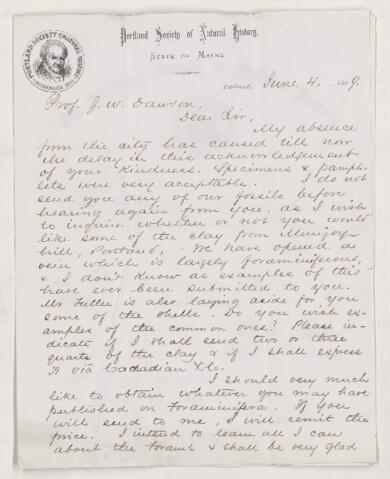 Portland Society of Natural History,
State of Maine
Portland, June 4, 1869.
Prof. J. W. Dawson,
Dear Sir,
My absence
from the city has caused till now
the delay in this acknowledgement
of your kindness. Specimens & Pamph-
lets were very acceptable. I do not
send you any of our fossils before
hearing again from you, as I wish
to inquire whether or not you would
like some of the clay from Munjoy-
hill, Portland. We have opened a
vein which is largely foraminiferous,
& I don't know as examples of this
have ever been submitted to you.
Mr Fuller is also laying aside for you
some of the shells. Do you wish ex-
amples of the common ones? Please in-
dicate if I shall send two or three
quarts of the clay & if I shall express
it via Canadian X Co.
I should very much
like to obtain whatever you may have
published on Foraminifera. If you
will send to me, I will remit the
price. I intend to learn all I can
about the Forams & shall be very glad